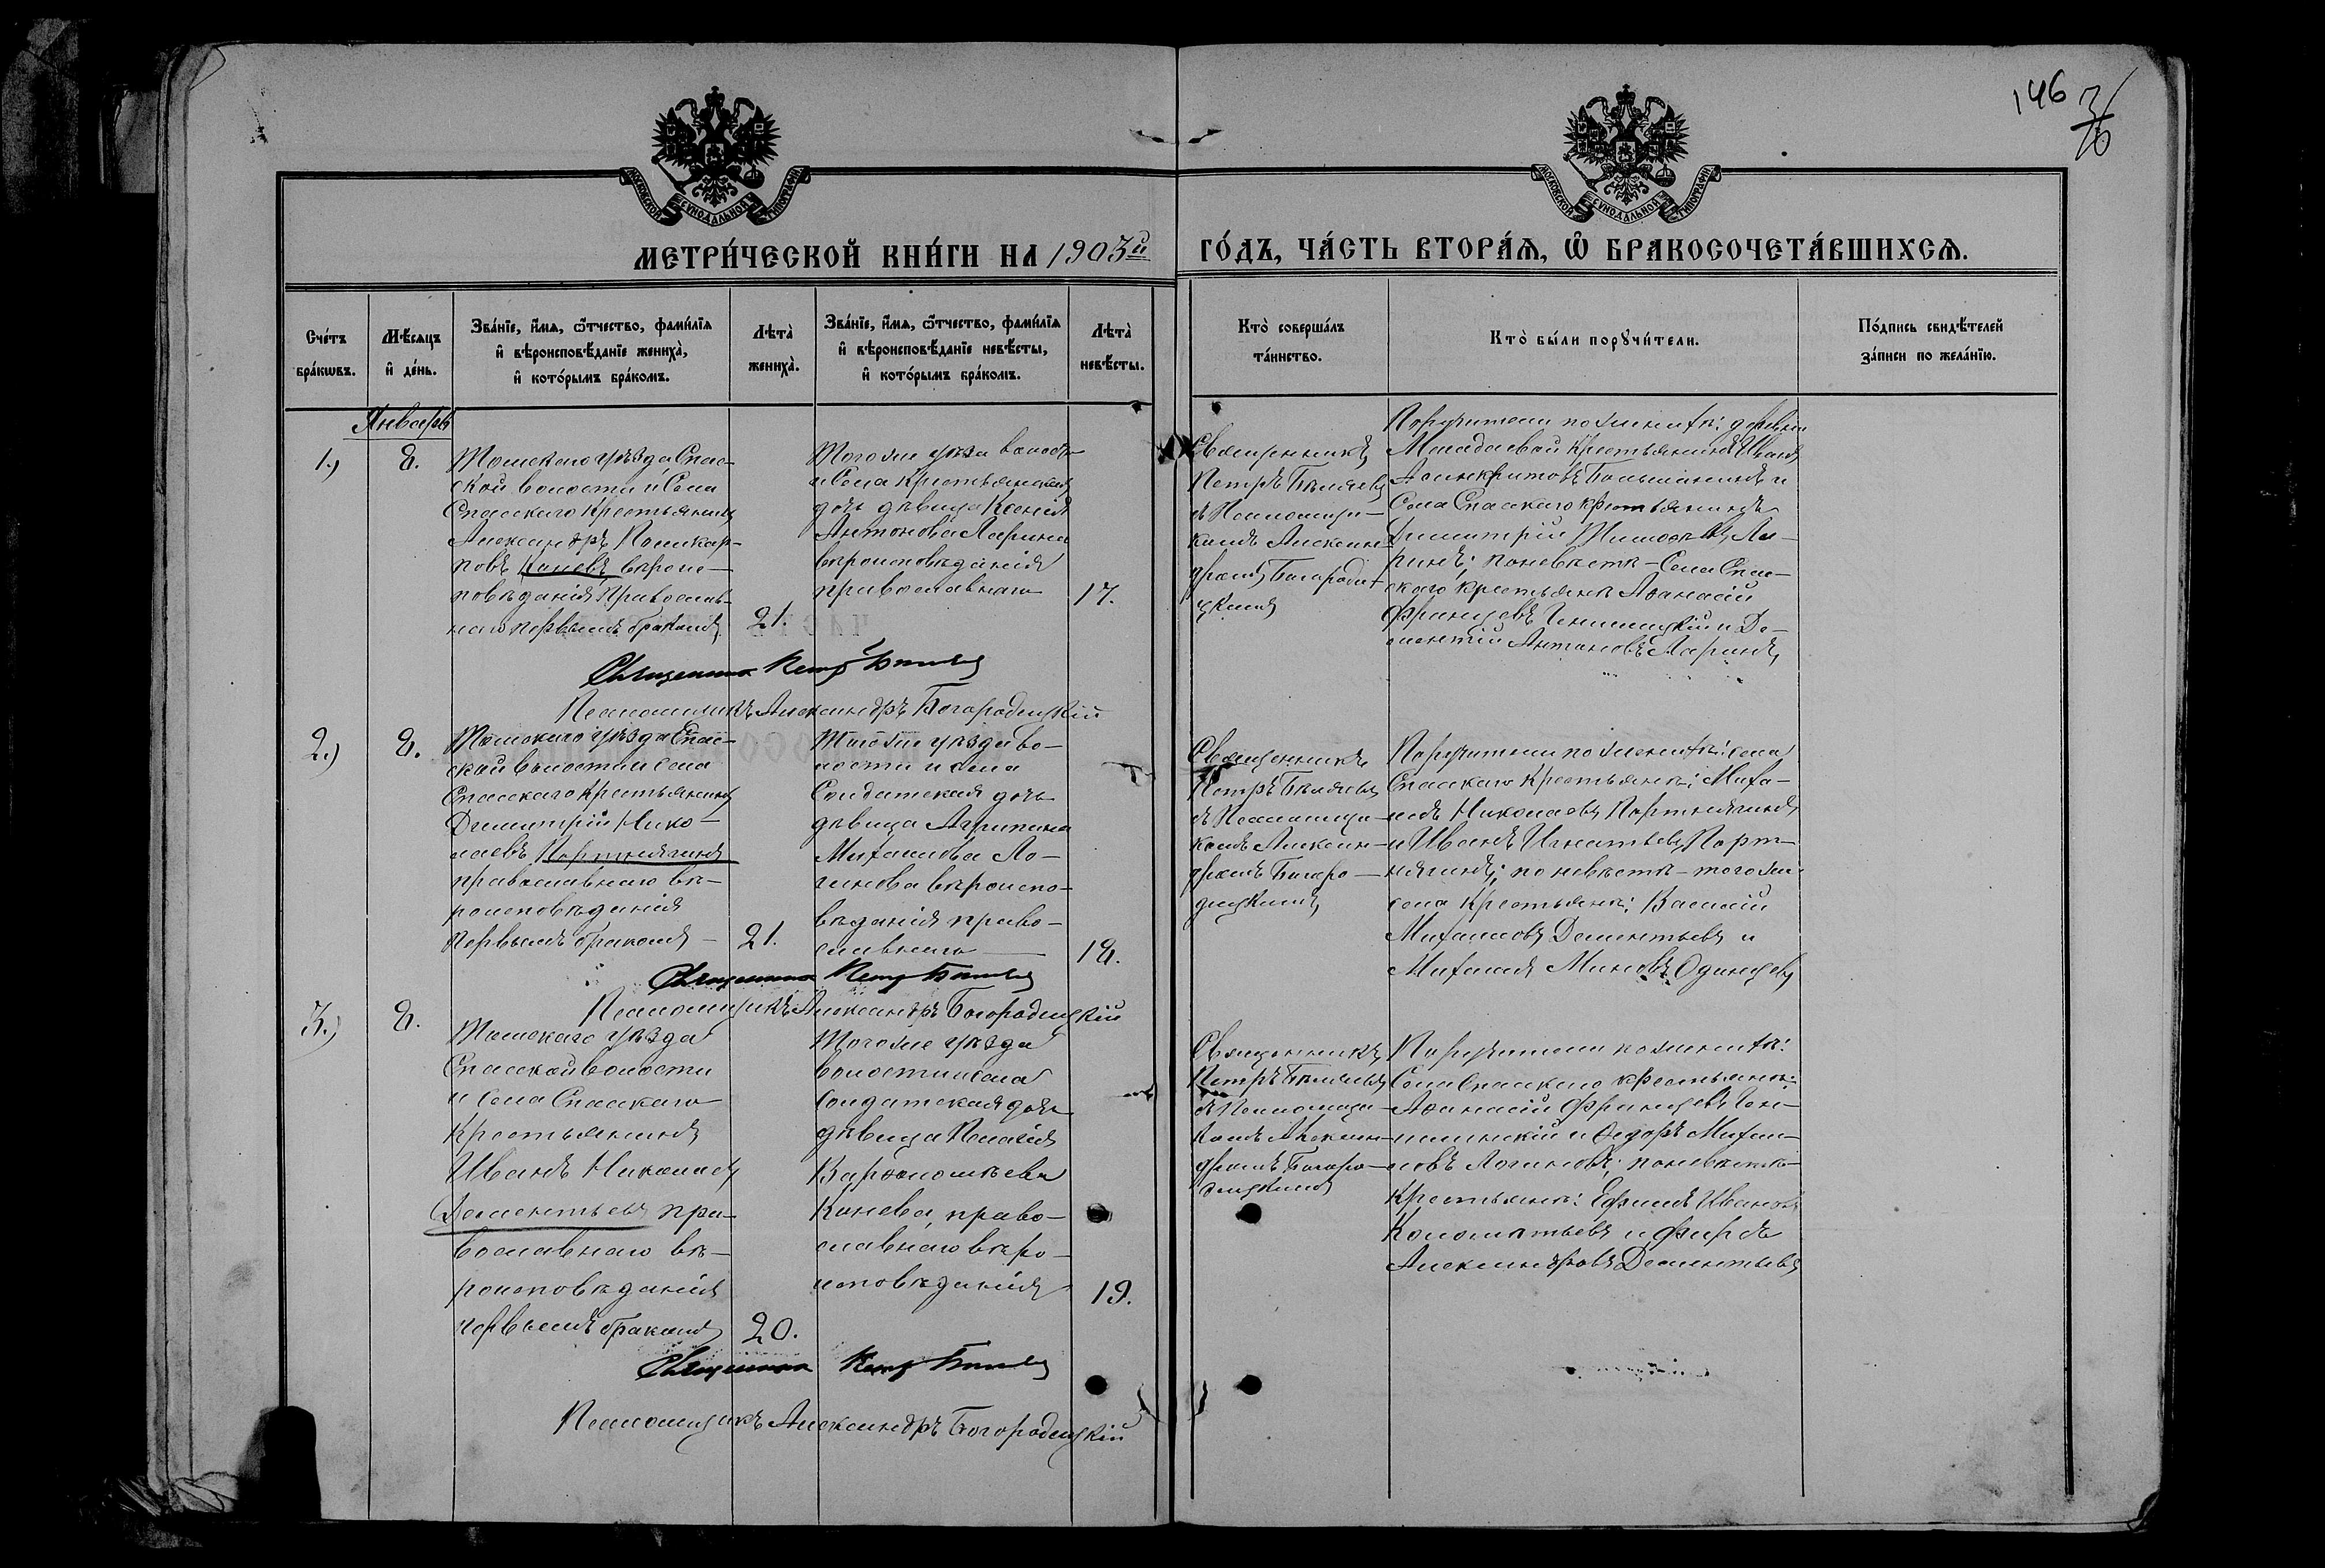 146
МОСКОВСКОЙ СѴНОДАЛЬНОЙ ТИПОГРАФІИ
МОСКОВСКОЙ СѴНОДАЛЬНОЙ ТИПОГРАФІИ
МЕТРИ́ЧЕСКОЙ КНИ́ГИ НА 1903й ГО́ДЪ, ЧА́СТЬ ВТОРА́Ѧ, Ѡ҆ БРАКОСОЧЕТА́ВШИХСѦ.
Сче́тъ
бра́кѡвъ.
Мѣ́сяцъ
и҆ де́нь.
Зва́нїе, и҆́мя, ѻ҆́тчество, фами́лїя
и҆ вѣроисповѣ́данїе жениха̀,
и҆ кото́рымъ бра́комъ.
Лѣта̀
жениха̀.
Зва́нїе, и҆́мя, ѻ҆́тчество, фами́лїя
и҆ вѣроисповѣ́данїе невѣ́сты,
и҆ кото́рымъ бра́комъ.
Лѣта̀
невѣ́сты.
Кто̀ соверша́лъ
та́инство.
Кто̀ бы́ли порꙋчи́тели.
По́дпись свидѣ́телей
за́писи по жела́нїю.
Январь
1.)
8.
Томскаго уѣзда Спас-
ской волости и села
Спасскаго крестьянинъ
Александръ Поликар-
повъ Коневъ вѣроис-
повѣданія православ-
наго первымъ бракомъ
21.
Того же уѣзда волости
и села крестьянская
дочь дѣвица Ксенія
Антонова Ларина
вѣроисповѣданія
православнаго
17.
Священникъ
Петръ Бѣляевъ
съ псаломщи-
комъ Алексан-
дромъ Богороди-
цкимъ
Поручители по женихѣ: деревни
крестьянинъ Иванъ
Асинкритовъ Большанинъ и
села Спасскаго крестьянинъ
Димитрій Ла-
ринъ; по невѣстѣ - села Спас-
скаго крестьяне Аѳанасій
Францевъ и Де-
ментій Антоновъ Ларинъ,
Священникъ Петръ Бѣляевъ
Псаломщикъ Александръ Богородицкій
2.)
8.
Томскаго уѣзда Спас-
ской волости и села
Спасскаго крестьянинъ
Димитрій Нико-
лаевъ Портнягинъ
православнаго вѣ-
роисповѣданія
первымъ бракомъ -
21.
Того же уѣзда во-
лости и села
Солдатская дочь
дѣвица Агрипина
Михаилова Ло-
гинова вѣроиспо-
вѣданія право-
славнаго
18.
Священникъ
Петръ Бѣляевъ
съ псаломщи-
комъ Алексан-
дромъ Богоро-
дицкимъ
Поручители по женихѣ: села
Спасскаго крестьяне: Миха-
илъ Николаевъ Портнягинъ
и Иванъ Игнатьевъ Порт-
нягинъ; по невѣстѣ - того же
села крестьяне: Василій
Михаиловъ Дементьевъ и
Михаилъ Миновъ Одинцевъ
Священникъ Петръ Бѣляевъ
Псаломщикъ Александръ Богородицкій
3.)
8.
Томскаго уѣзда
Спасской волости
и села Спасскаго
Крестьянинъ
Иванъ Николаевъ
Дементьевъ пра-
вославнаго вѣ-
роисповѣданія
первымъ бракомъ
20.
Того же уѣзда
волости и села
Солдатская дочь
дѣвица Пелагія
Варѳоломѣева
Конева, право-
славнаго вѣро-
исповѣданія
19.
Священникъ
Петръ Бѣляевъ
съ псаломщи-
комъ Алексан-
дромъ Богоро-
дицкимъ
Поручители по женихѣ:
Села Спасскаго крестьяне:
Аѳанасій Францевъ
и Ѳедоръ Михаи-
ловъ Логиновъ; по невѣстѣ-
крестьяне: Ефимъ Ивановъ
Коломатьевъ и Фирсъ
Александровъ Дементьевъ
Священникъ Петръ Бѣляевъ
Псаломщикъ Александръ Богородицкій